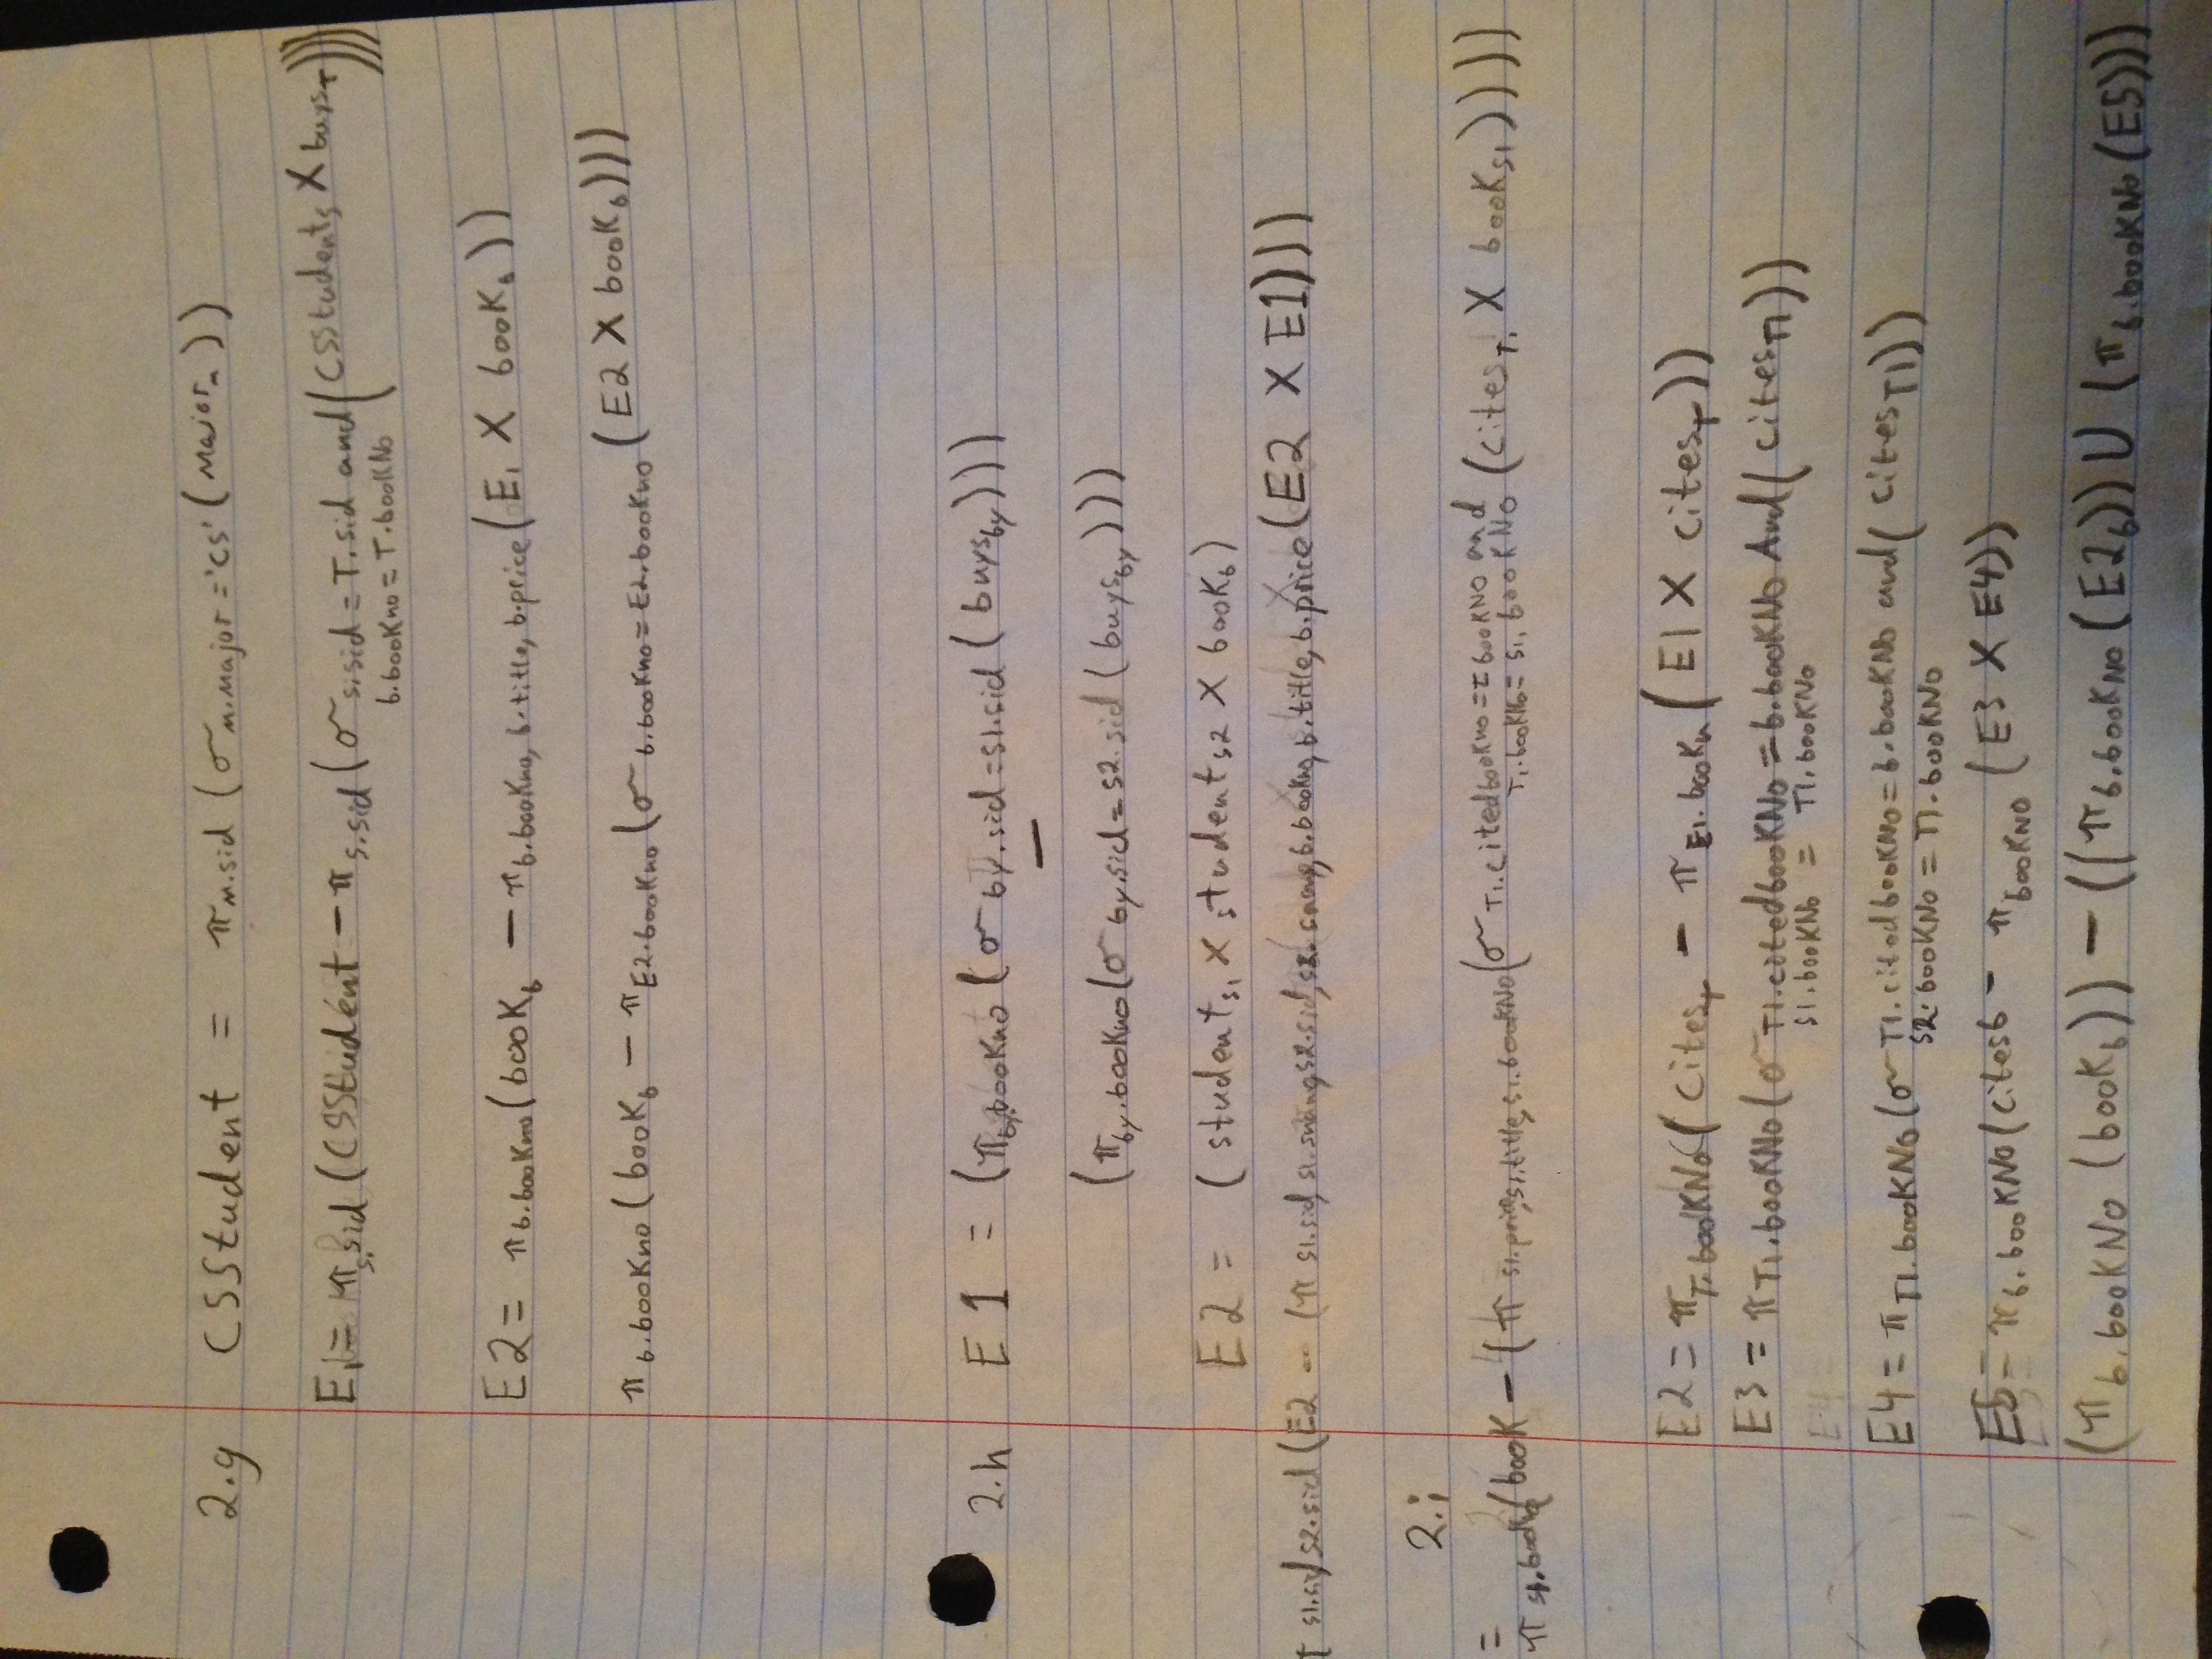 2.g CSStudent = π M.sid (σ M.Major = 'CS' (Major M))
E1 = π S.sid (CSStudent − π S.sid (σ S.sid = T.sid and (CSStudent S X buys T)))
b.bookno = T.bookNo
E2 = π b.bookno (book b − π b.bookno, b.title, b.price (E1 X book b))
π b.bookno (book b − π E2.bookno (σ b.bookno = E2.bookno (E2 X book b)))
2.h E1 = (π by.bookno (σ by.sid = s1.sid (buys by)))
−
(π by.bookno (σ by.sid = s2.sid (buys by)))
E2 = (student s1 X student s2 X book b)
π s1.sid, s2.sid (E2 − (π s1.sid, s1.sname, s2.sid, s2.sname, b.bookno, b.title, b.price (E2 X E1)))
2.i
=
π s1.bookno (book − (π s1.price, s1.title, s1.bookNo (σ T1.citedbookno = bookNo and (cites T1 X book s1))))
T1.bookNo = s1.bookNo
E2 = π T.bookNo (cites T − π E1.bookn (E1 X cites T))
E3 = π T1.bookNo (σ T1.citedbookNo = b.bookNo And (cites T1))
s1.bookNo = T1.bookNo
E4 = π T1.bookNo (σ T1.citedbookNo = b.bookNo and (cites T1))
s2.bookNo = T1.bookNo
E5 = π b.bookNo (cites b − π bookNo (E3 X E4))
(π b.bookNo (book b)) − ((π b.bookNo (E2 b)) U (π b.bookNo (E5)))